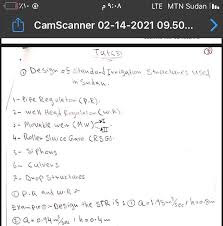 ٩:٠٨ م
LTE MTN Sudan
CamScanner 02-14-2021 09.50...
Tut(3)
① Design of Standard Irrigation Structures used
in Sudan.
1- Pipe Regulator (P.R).
2- Well Head Regulator (W.R).
3- Movable weir (MW) I
II
4- Roller Sluice Gate (RSG).
5- Siphons
6- Culvers
7- Drop structures
① P.R and W.R
Example - Design the
① Q = 1.95 m³/sec, h = 0.8m
② Q = 0.94 m³/sec, h = 0.4m